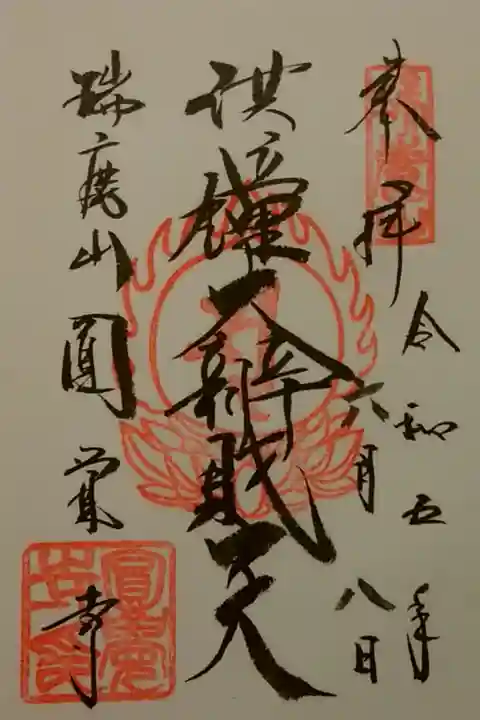 奉拝
令和五年
六月八日
洪鐘大辨財天
瑞鹿山圓覚寺